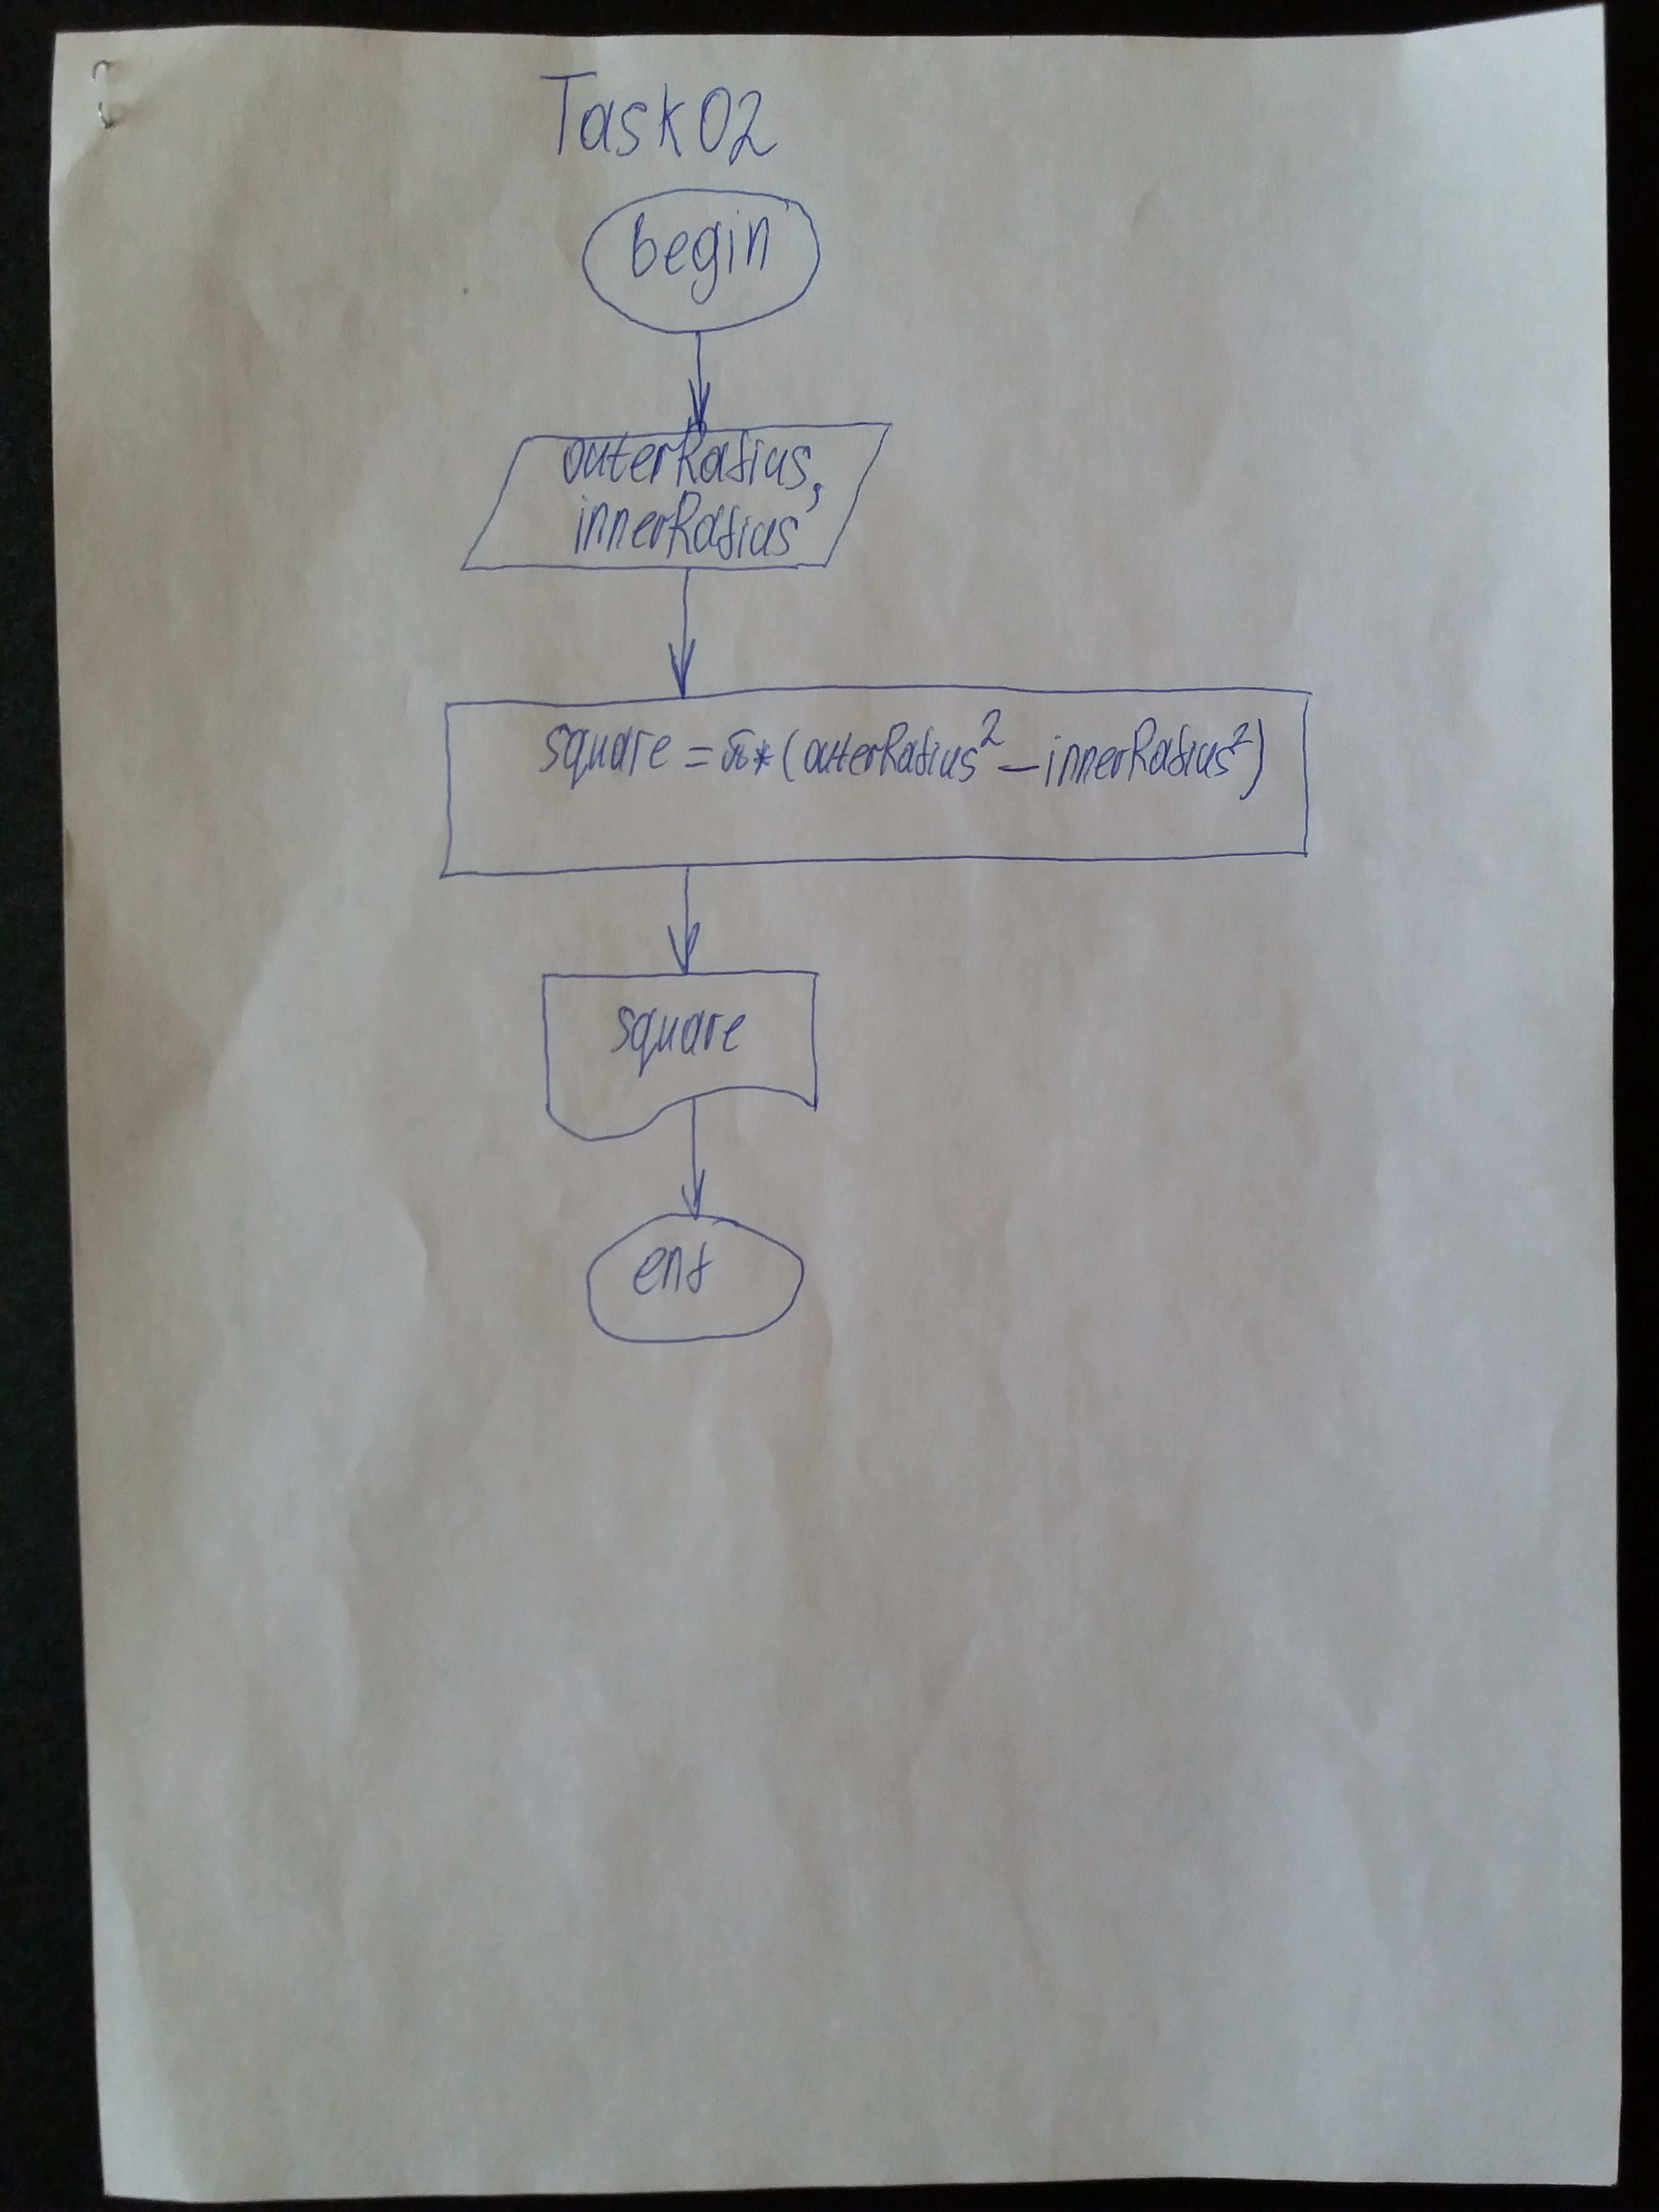 Task02
begin
outerRadius,
innerRadius
square = π*(outerRadius² – innerRadius²)
square
end